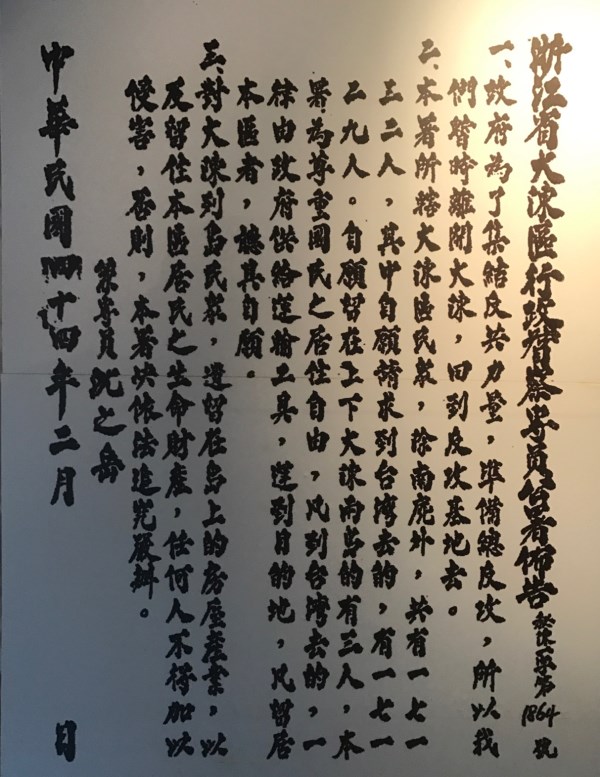 浙江省大陳區行政督察專員公署佈告 第1864號
一、政府為了集結反共力量，準備總反攻，所以我
們暫時離開大陳，回到反攻基地去。
二、本署所轄大陳區民眾，除南麂外，共有一七一
三二人，其中自願請求到台灣去的，有一七一
二九人。自願留在上下大陳兩島的有三人，本
署為尊重國民之居住自由，凡到台灣去的，一
律由政府供給運輸工具，運到目的地，凡留居
本區者，聽其自願。
三、對大陳列島民眾，遺留在島上的房屋產業，以
及留住本區居民之生命財產，任何人不得加以
侵害，否則，本署決依法追究嚴辦。
兼專員沈之岳
中華民國四十四年二月 日